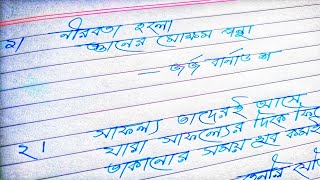 ১। নীরবতা হলো
জ্ঞানের মোক্ষম পন্থা
— জর্জ বার্নাড শ
২। সাফল্য তাদেরই আসে,
যারা সাফল্যের দিকে
তাকানোর সময় খুব কমই